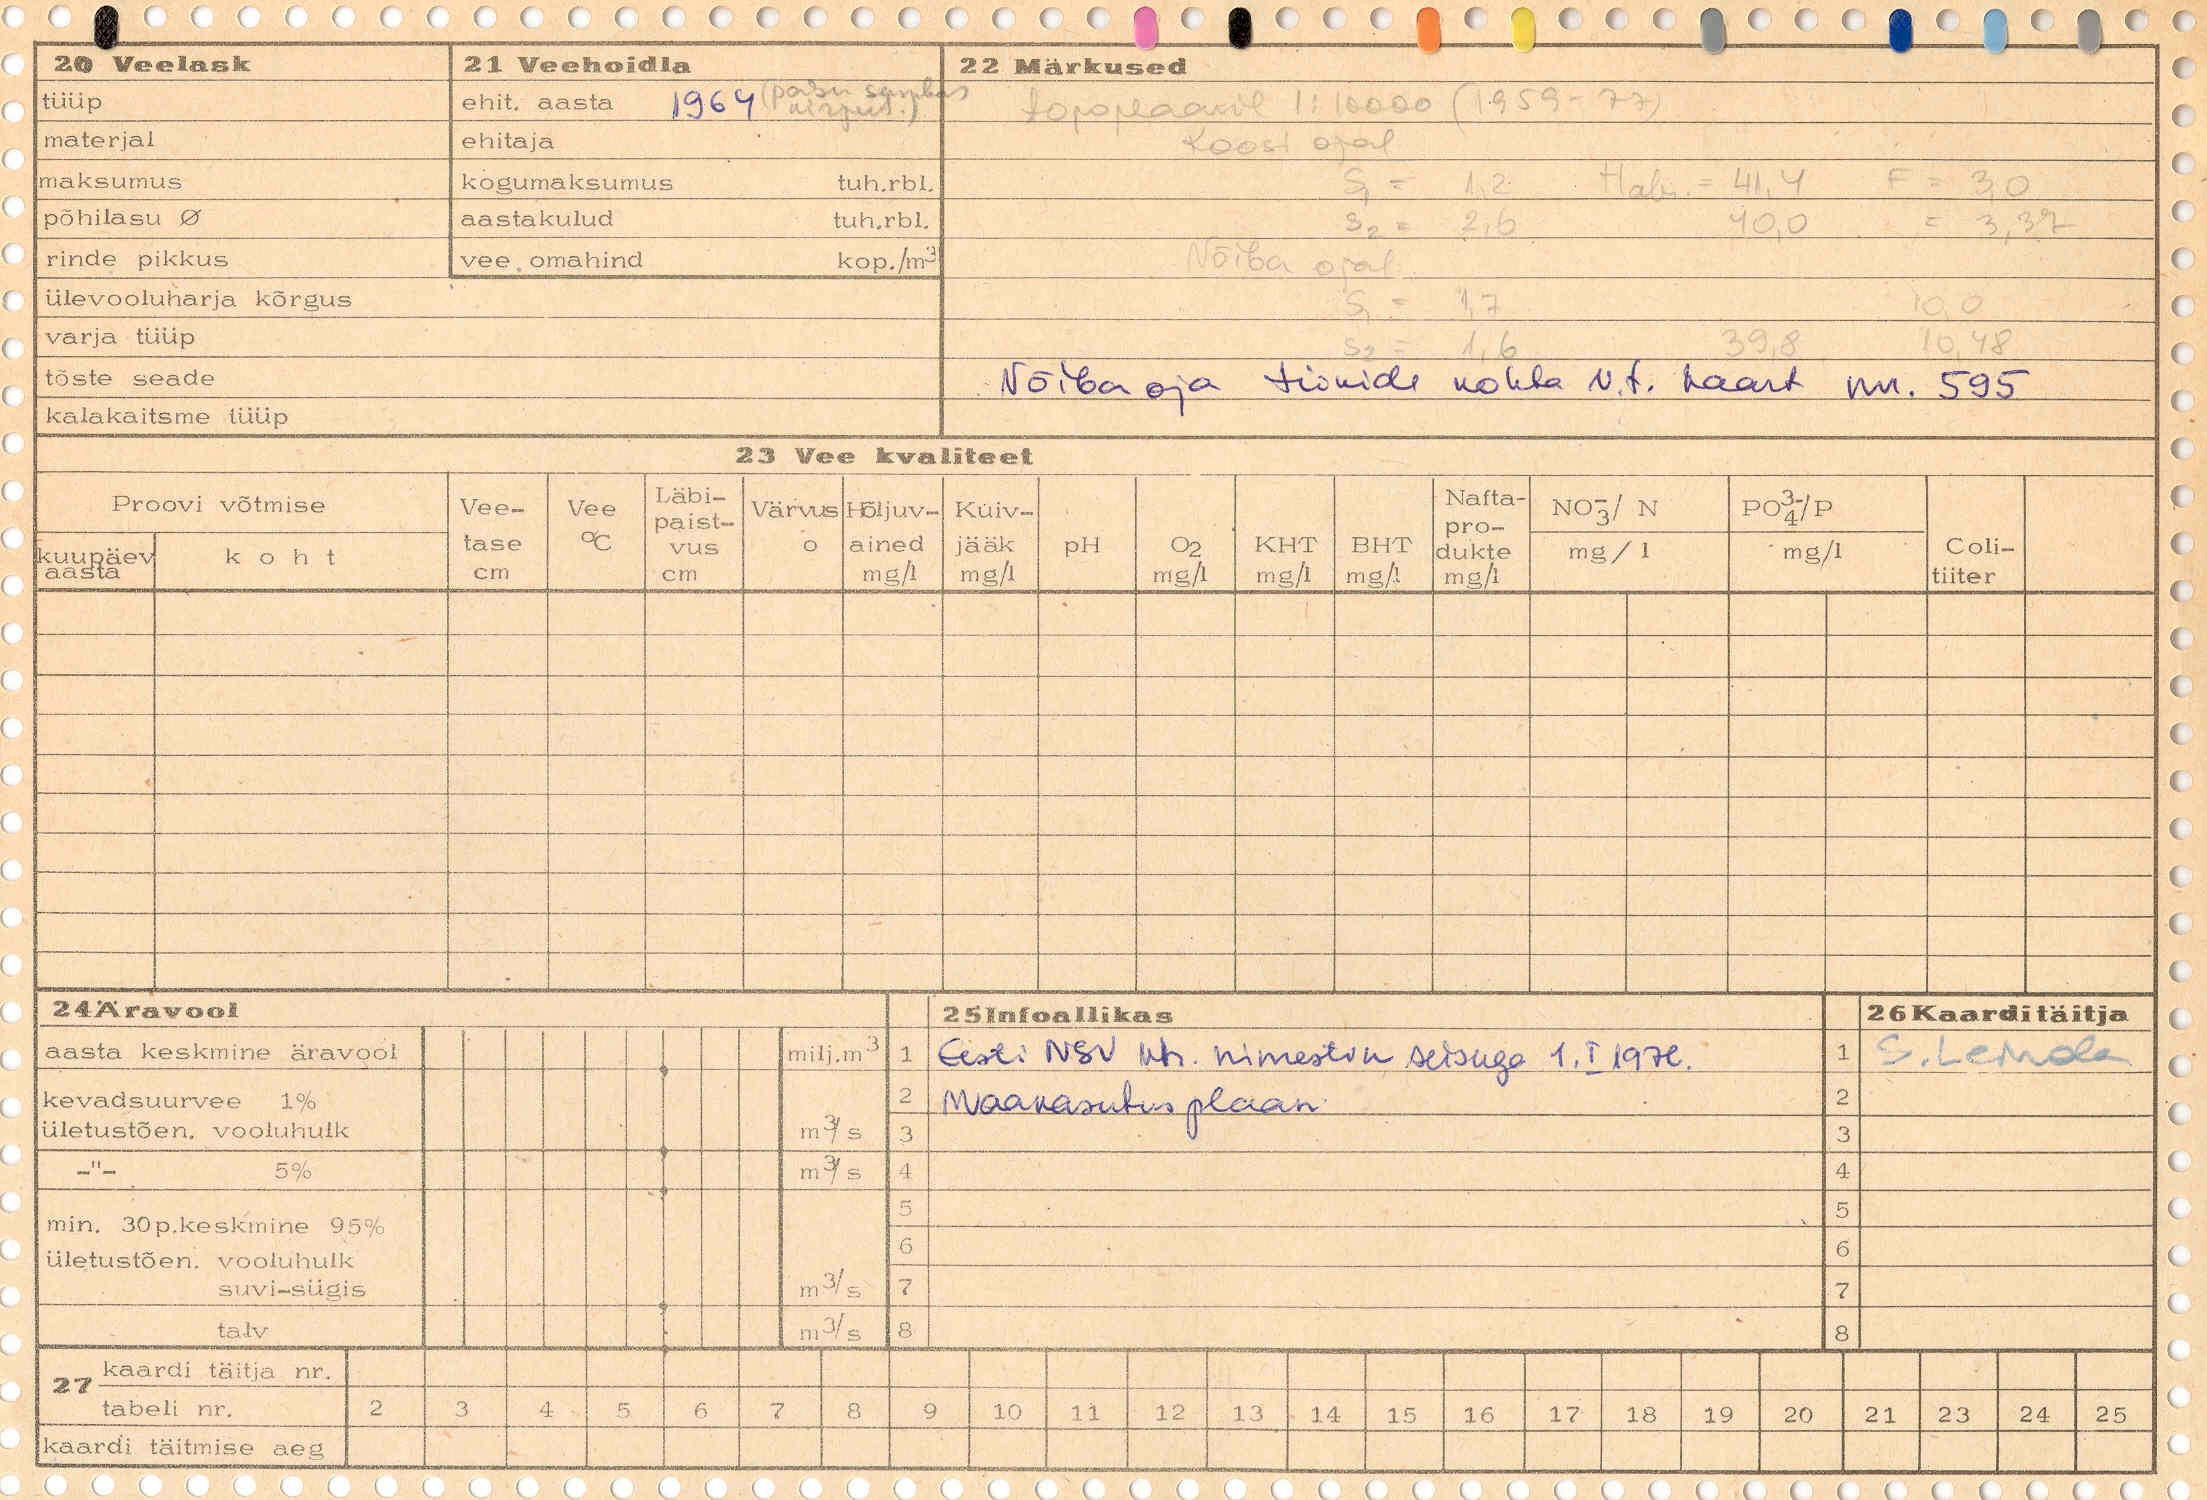 20 Veelask
tüüp
materjal
maksumus
põhilasu Ø
rinde pikkus
ülevooluharja kõrgus
varja tüüp
tõste seade
kalakaitsme tüüp
21 Veehoidla
ehit. aasta 1964
ehitaja
kogumaksumus tuh.rbl.
aastakulud tuh.rbl.
vee omahind kop./m³
22 Märkused
topoplaanil 1:10000 (1959-77)
Koosi ojal
S₁ = 1,2 Habs. = 41,4 F = 3,0
S₂ = 2,6 40,0 = 3,37
Nõiba ojal
S₁ = 1,7 10,0
S₂ = 1,6 39,8 10,48
Nõiba oja tiikide kohta v.t. kaart nr. 595
23 Vee kvaliteet
Proovi võtmise
kuupäev aasta
koht
Vee-
tase
cm
Vee
°C
Läbi-
paist-
vus
cm
Värvus
o
Hõljuv-
ained
mg/l
Kuiv-
jääk
mg/l
pH
O₂
mg/l
KHT
mg/l
BHT
mg/l
Nafta-
pro-
dukte
mg/l
NO₃⁻/ N
mg/l
PO₄³⁻/P
mg/l
Coli-
tiiter
24 Äravool
aasta keskmine äravool milj.m³
kevadsuurvee 1%
ületustõen. vooluhulk m³/s
-"- 5% m³/s
min. 30p.keskmine 95%
ületustõen. vooluhulk
suvi-sügis m³/s
talv m³/s
25 Infoallikas
1 Eesti NSV vh. nimestik seisuga 1.I 1978.
2 Maakasutusplaan
3
4
5
6
7
8
26 Kaarditäitja
1 S. Leinola
2
3
4
5
6
7
8
27 kaardi täitja nr.
tabeli nr. 2 3 4 5 6 7 8 9 10 11 12 13 14 15 16 17 18 19 20 21 23 24 25
kaardi täitmise aeg